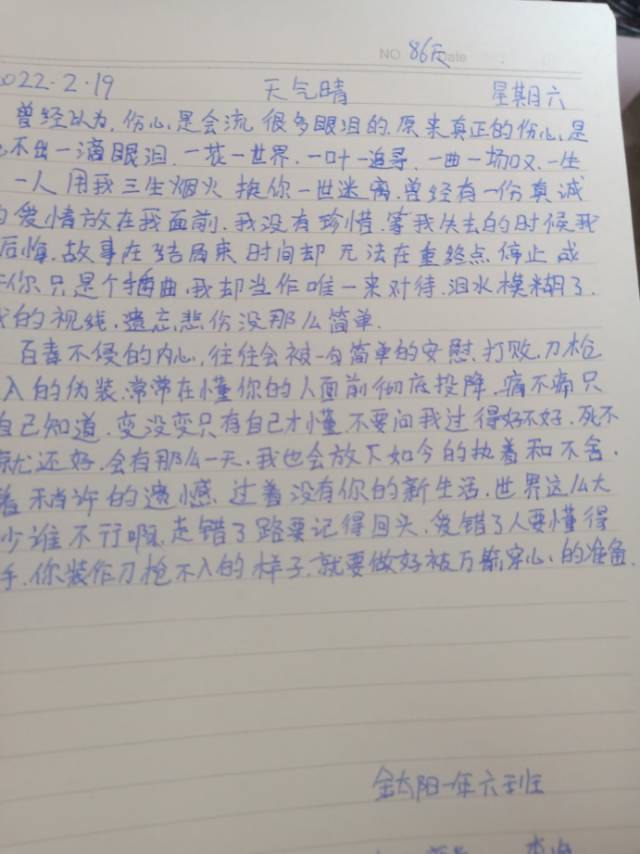 NO 86天 ate
2022.2.19 天气晴 星期六
曾经以为,伤心是会流很多眼泪的,原来真正的伤心,是
不出一滴眼泪,一花一世界,一叶一追寻,一曲一场叹,一生
一人用我三生烟火换你一世迷离,曾经有一份真诚
的爱情放在我面前,我没有珍惜,等我失去的时候我
后悔,故事在结局来时间却无法在重终点停止成
你只是个插曲,我却当作唯一来对待,泪水模糊了,
我的视线,遗忘悲伤没那么简单.
百毒不侵的内心,往往会被一句简单的安慰,打败,刀枪
入的伪装,常常在懂你的人面前彻底投降,痛不痛只
自己知道,变没变只有自己才懂,不要问我过得好不好,死不
就还好,会有那么一天,我也会放下如今的执着和不舍,
着稍许的遗憾,过着没有你的新生活,世界这么大
少谁不行啊,走错了路要记得回头,爱错了人要懂得
手,你装作刀枪不入的样子,就要做好被万箭穿心,的准备.
阳一年六班